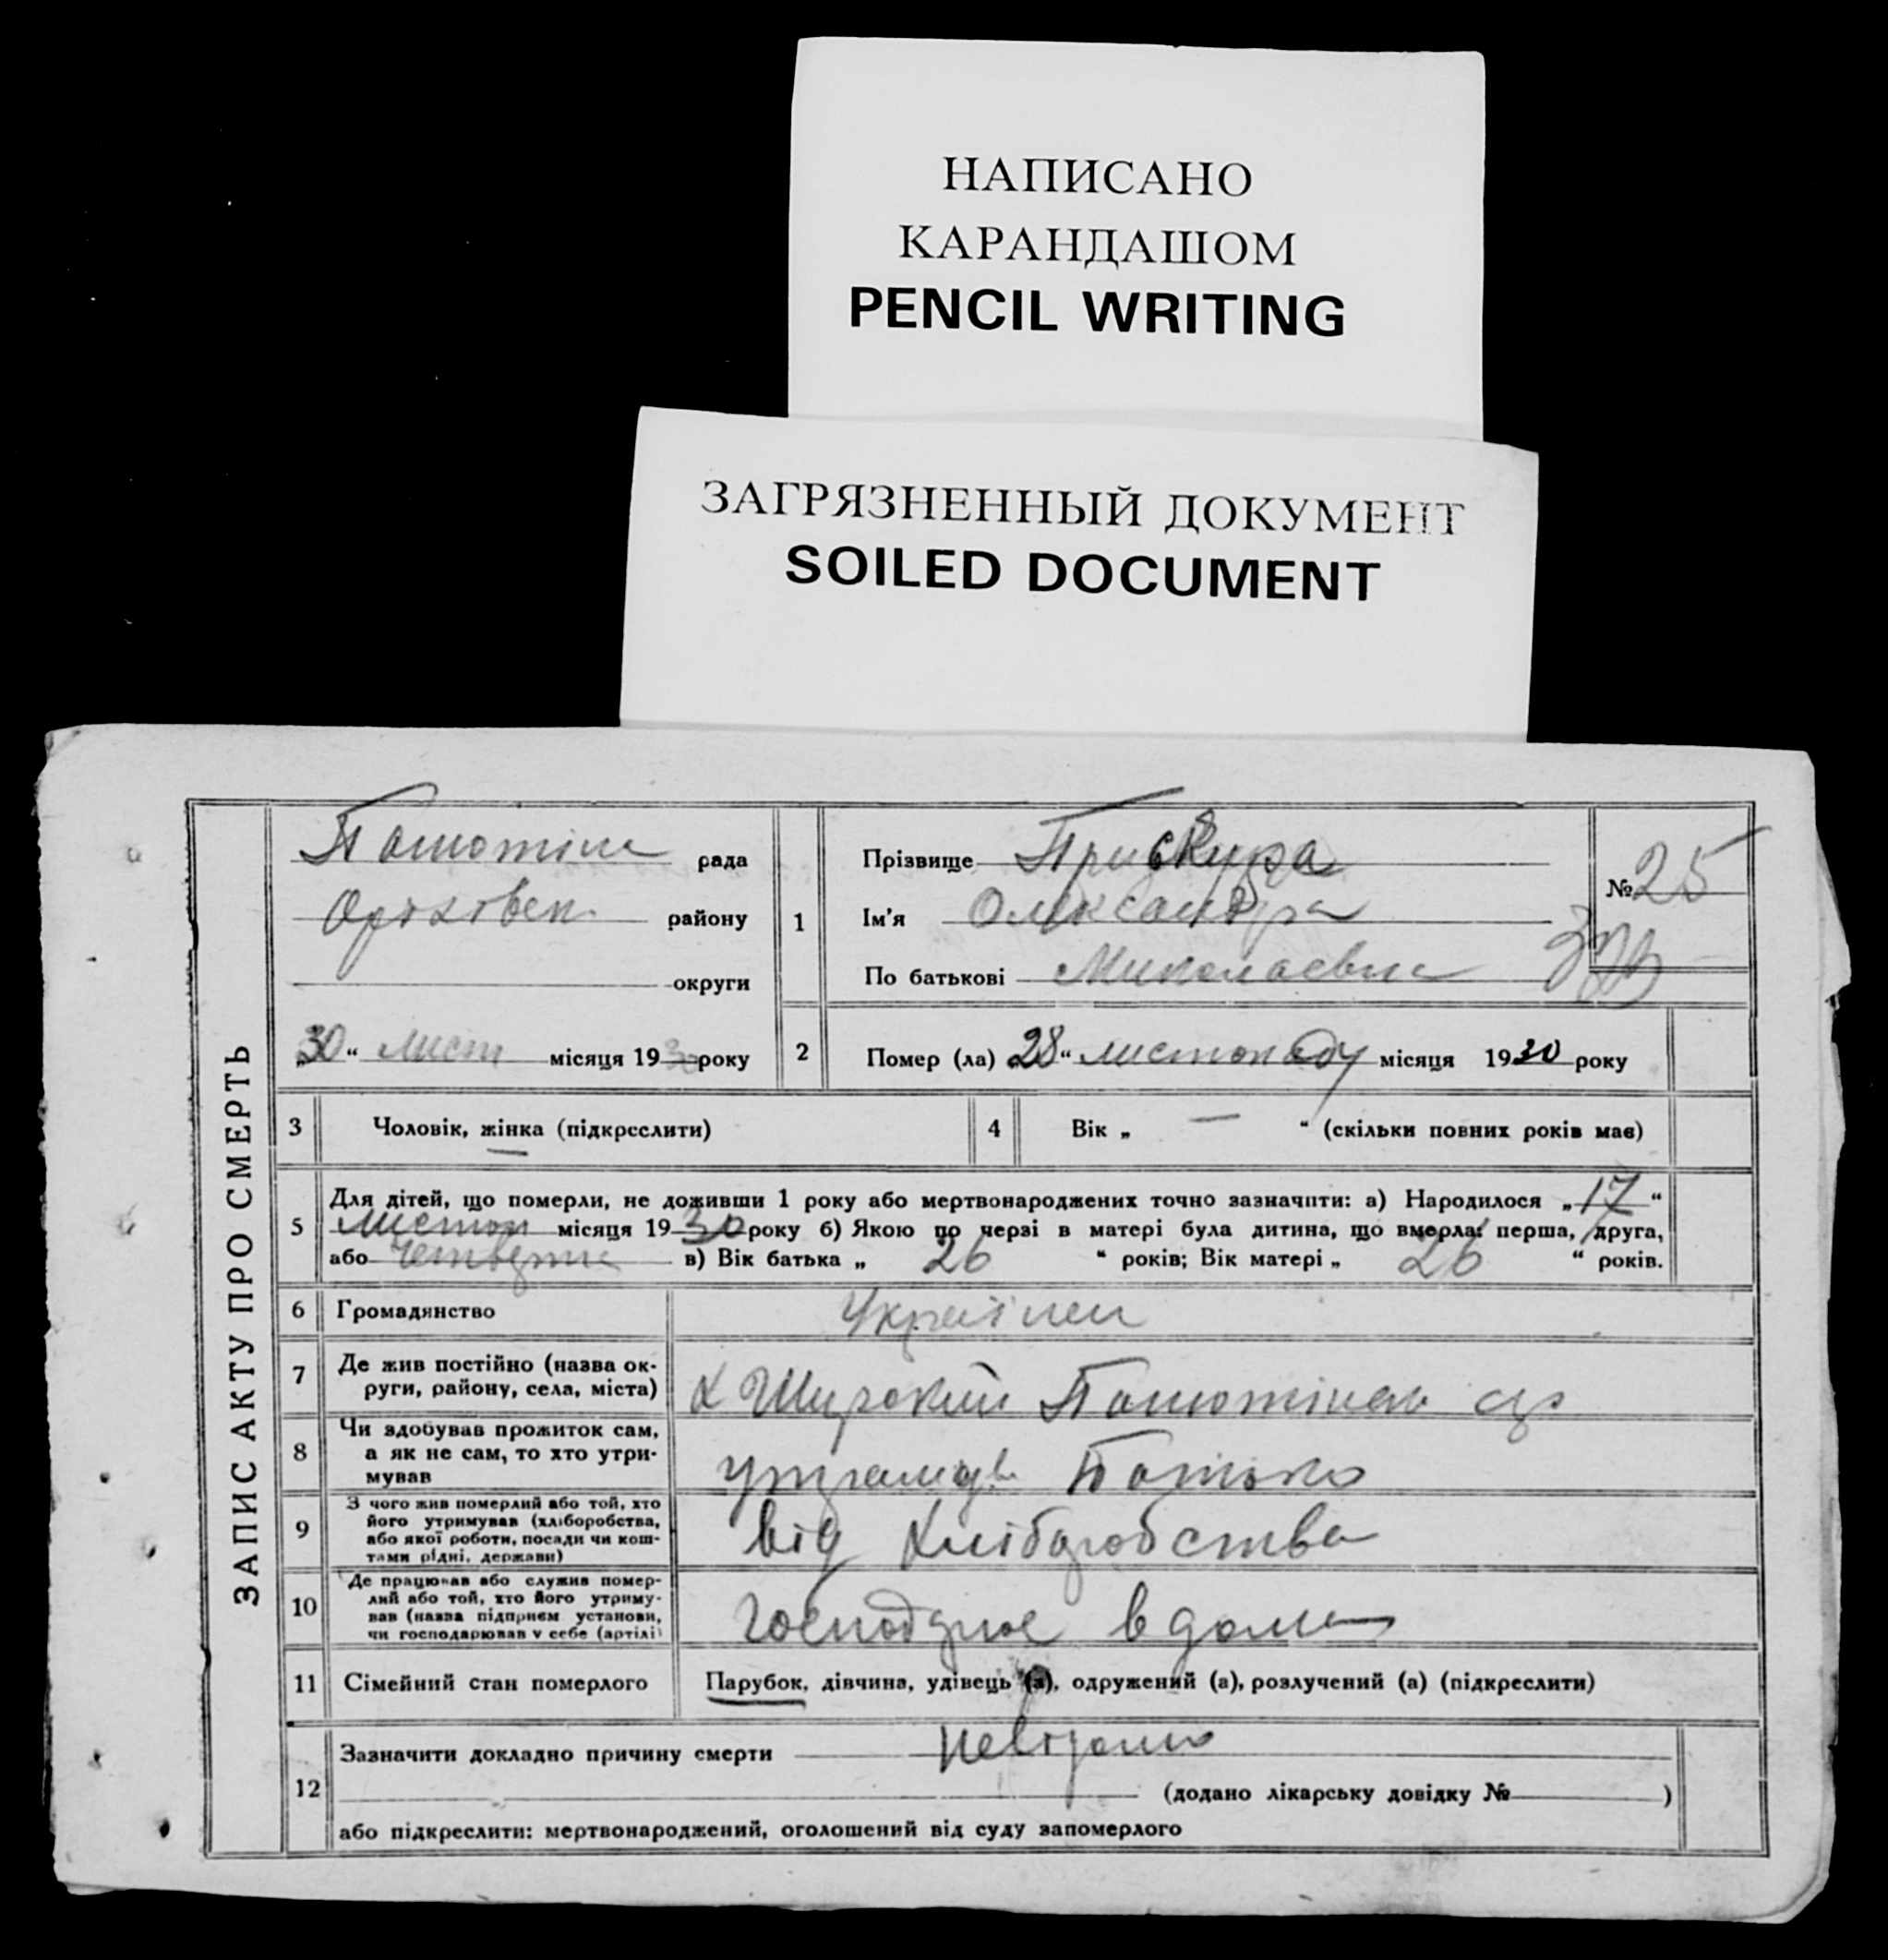 НАПИСАНО
КАРАНДАШОМ
PENCIL WRITING
ЗАГРЯЗНЕННЫЙ ДОКУМЕНТ
SOILED DOCUMENT
ЗАПИС АКТУ ПРО СМЕРТЬ
рада
району
округи
„30“ лист місяця 1930 року
1
Прізвище Прискура
Ім'я Олександра
По батькові Миколаевна
№ 25
2
Помер (ла) 28“ листопаду місяця 1930 року
3 Чоловік, жінка (підкреслити)
4 Вік „ — “ (скільки повних років має)
5 Для дітей, що померли, не доживши 1 року або мертвонароджених точно зазначити: а) Народилося „17“
листоп місяця 1930 року б) Якою по черзі в матері була дитина, що вмерла: перша, друга,
або четверта в) Вік батька „ 26 “ років; Вік матері „ 26 “ років.
6 Громадянство Українец
7 Де жив постійно (назва округи, району, села, міста) х Широкий
8 Чи здобував прожиток сам, а як не сам, то хто утримував Батько
9 З чого жив померлий або той, хто його утримував (хліборобства, або якої роботи, посади чи коштами рідні, держави) від хліборобства
10 Де працював або служив померлий або той, хто його утримував (назва підприєм установи, чи господарював у себе (артілі) в дома
11 Сімейний стан померлого Парубок, дівчина, удівець (а), одружений (а), розлучений (а) (підкреслити)
12 Зазначити докладно причину смерти невідомо
(додано лікарську довідку № )
або підкреслити: мертвонароджений, оголошений від суду запомерлого